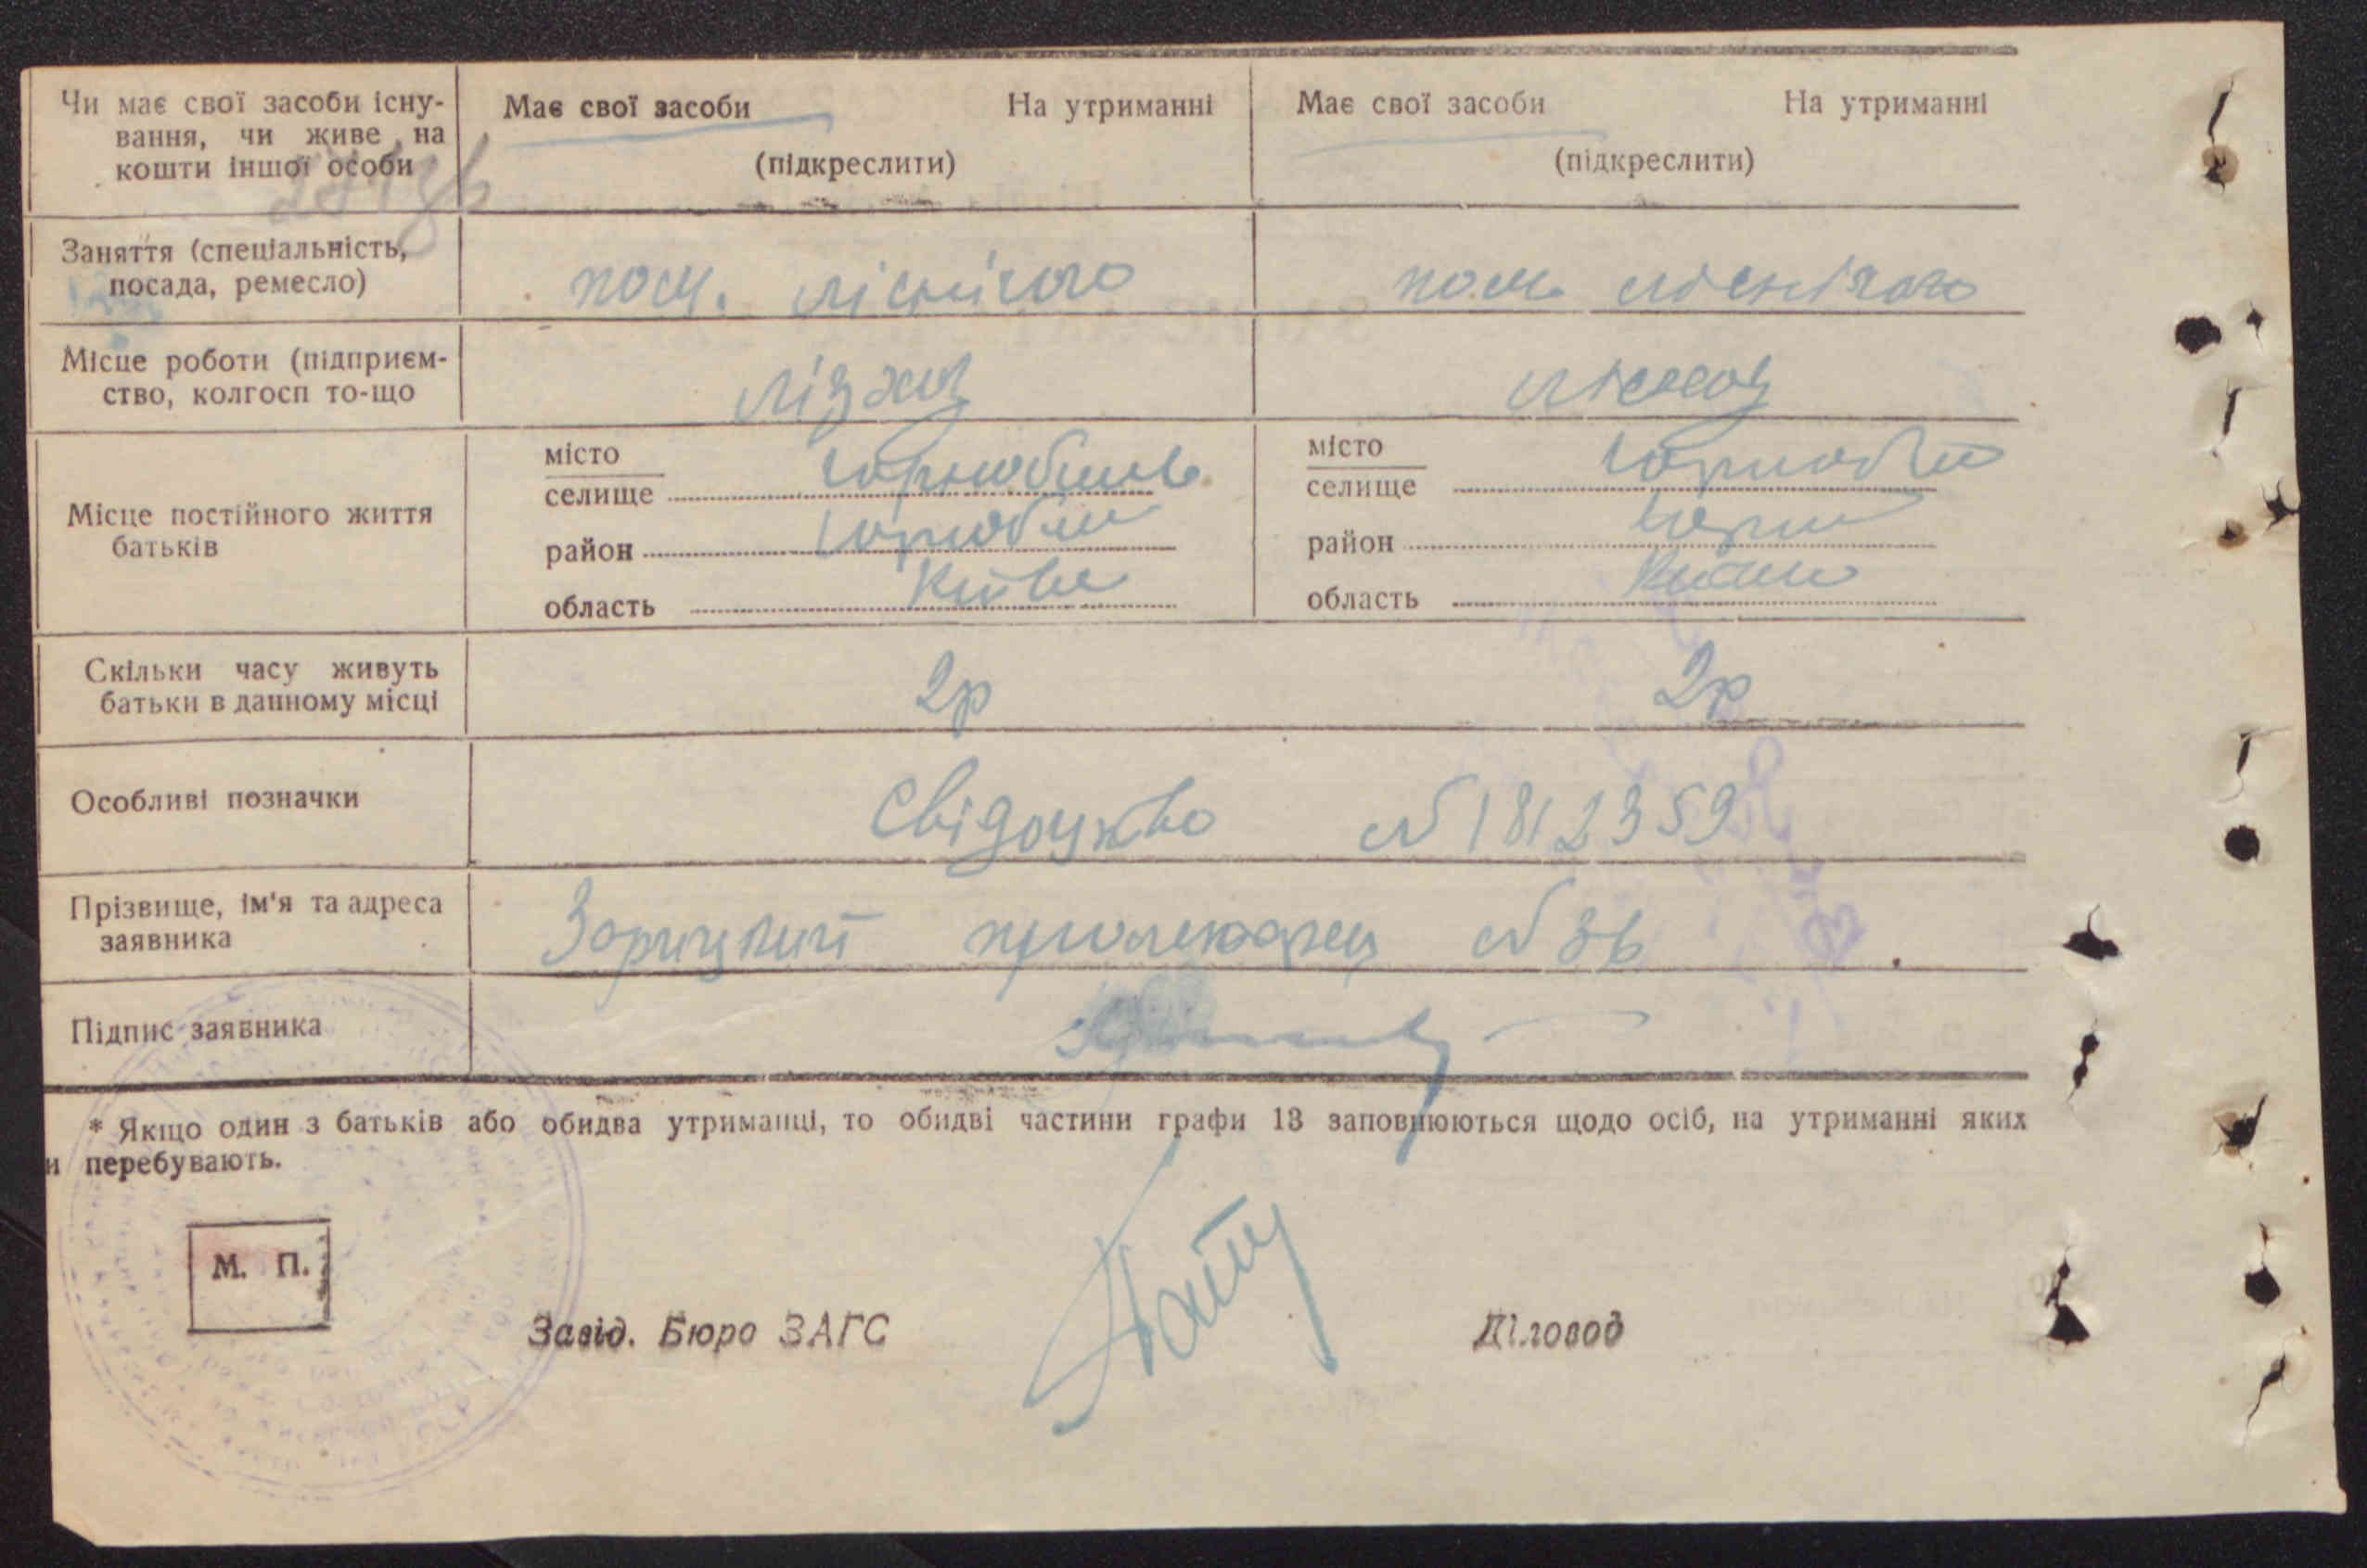 Чи має свої засоби існу-
вання, чи живе на
кошти іншої особи
Має свої засоби На утриманні
(підкреслити)
Має свої засоби На утриманні
(підкреслити)
Заняття (спеціальність,
посада, ремесло)
пом. лісничого
пом. лісничого
Місце роботи (підприєм-
ство, колгосп то-що
лізхоз
лісхоз
Місце постійного життя
батьків
місто
селище Чорнобиль
район
область
місто
селище
район
область
Скільки часу живуть
батьки в данному місці
2р
2р
Особливі позначки
Свідоцтво № 1812359
Прізвище, ім'я та адреса
заявника
Зорицкий № 36
Підпис заявника
* Якщо один з батьків або обидва утриманці, то обидві частини графи 13 заповнюються щодо осіб, на утриманні яких
и перебувають.
М. П.
Завід. Бюро ЗАГС
Діловод